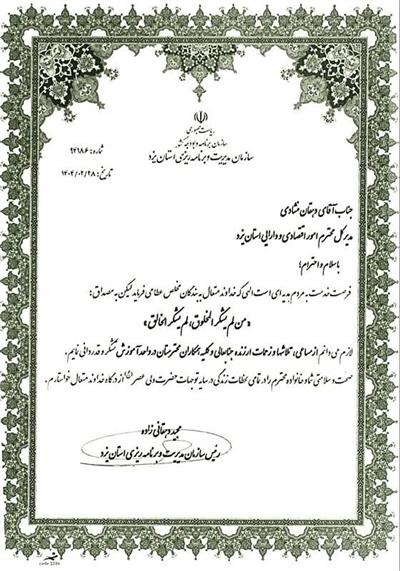 ریاست جمهوری
سازمان برنامه و بودجه کشور
سازمان مدیریت و برنامه ریزی استان یزد
شماره: ۹۴۱۸۶
تاریخ: ۱۴۰۴/۰۲/۲۸
جناب آقای دهقان منشادی
مدیرکل محترم امور اقتصادی و دارایی استان یزد
با سلام و احترام؛
فرصت خدمت به مردم هدیه ای است الهی که خداوند متعال به بندگان مخلص عطا می فرماید لیکن به مصداق:
«من لم یشکر المخلوق، لم یشکر الخالق»
لازم می دانم از مساعی، تلاشها و زحمات ارزنده جنابعالی و کلیه همکاران محترمتان در واحد آموزش تشکر و قدردانی نمایم.
صحت و سلامتی شما و خانواده محترم را در تمامی لحظات زندگی در سایه توجهات حضرت ولی عصر (عج) از درگاه خداوند متعال خواستارم.
مجید دهقانی زاده
رئیس سازمان مدیریت و برنامه ریزی استان یزد
code 1104